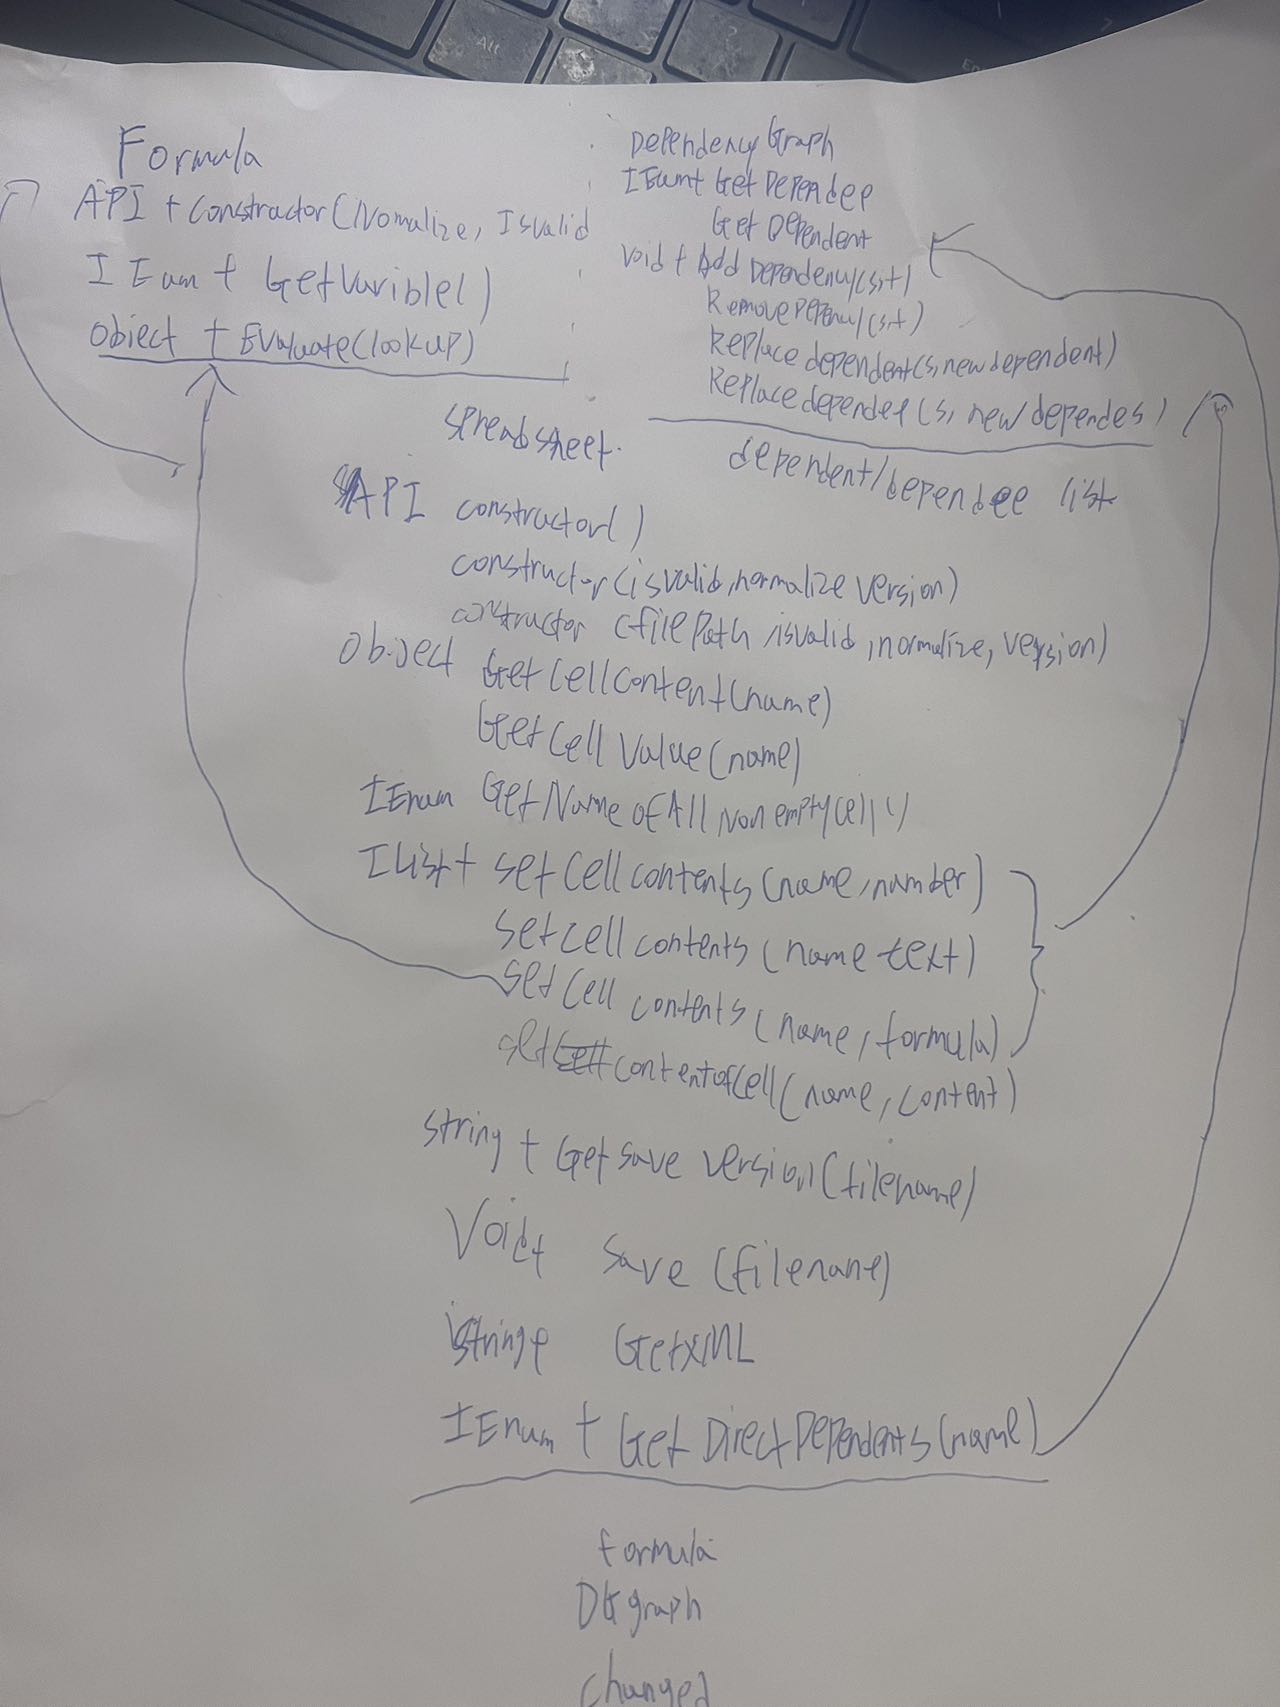 Formula
API + constractor(Nomalize, Isvalid
IEnum + GetVarible()
object + Evaluate(lookup)
Dependency Graph
IEnum+ Get Dependee
Get Dependent
void + Add Dependency(s,t)
Replace dependent(s, new dependent)
Replace dependee(s, new dependes)
dependent/dependee list
spreadsheet.
API constructor()
constructor(isvalid, normalize version)
constructor (filePath, isvalid, normalize, version)
Object GetCellContent(name)
GetCell Value(name)
IEnum GetNameOfAllNonemptyCell()
IList + setCellcontents(name, number)
setcell contents(name text)
setCell contents(name, formula)
set contentofCell(name, content)
string + Getsave version(filename)
Void+ save (filename)
GetXML
IEnum + Get DirectDependents(name)
formula
DGgraph
changed